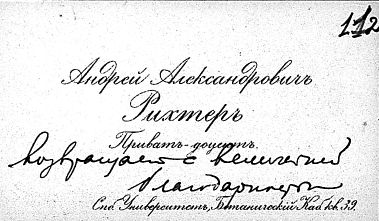 112
Андрей Александровичъ
Рихтеръ
Приватъ-доцентъ.
возвращает с величайшей
благодарностью
Спб. Университетъ, Ботаническій Каб. кв. 39.